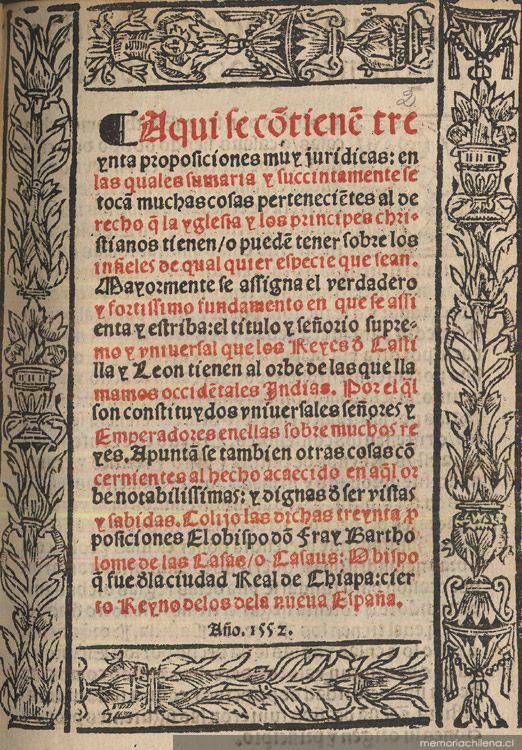 2
¶ Aqui se cõtienẽ tre
ynta proposiciones muy juridicas: en
las quales sumaria y succintamente se
tocã muchas cosas perteneciẽtes al de
recho q̃ la yglesia y los principes chri-
stianos tienen/o puedẽ tener sobre los
infieles de qual quier especie que sean.
Mayormente se assigna el verdadero
y fortissimo fundamento en que se assi
enta y estriba: el titulo y señorio supre-
mo y vniuersal que los Reyes d̃ Casti
lla y Leon tienen al orbe de las que lla
mamos occidẽtales Indias. Por el q̃l
son constituydos vniuersales señores y
Emperadores enellas sobre muchos re
yes. Apuntã se tambien otras cosas cõ
cernientes al hecho acaecido en aq̃l or
be notabilissimas: y dignas d̃ ser vistas
y sabidas. Colijo las dichas treynta ꝓ
posiciones El obispo dõ Fray Bartho
lome de las Casas/o Casaus: Obispo
q̃ fue d̃la ciudad Real de Chiapa: cier
to Reyno delos dela nueua España.
Año. 1552.
memoriachilena.cl